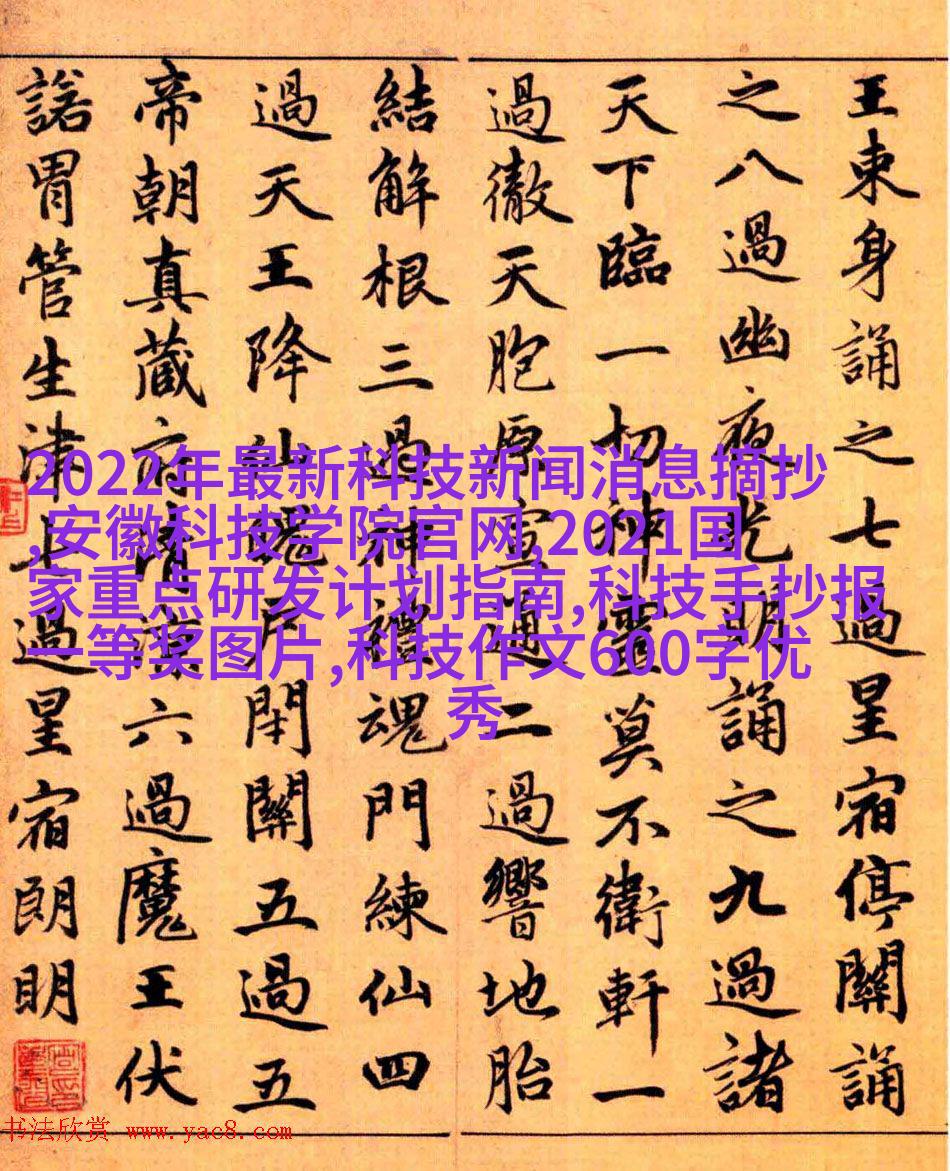 王束身誦之七過星宿停關誦
之八過幽夜光明誦之九過諸
天下臨一切神靈莫不衛軒一
過徹天胞原宣通二過響地胎
結解根三過神禮魂門練仙四
過天王降仙魂戶閇關五過五
帝朝真藏府清涼六過魔王伏
諾胃管生津七過星宿朗明
2022年最新科技新闻消息摘抄
,安徽科技学院官网,2021国
家重点研发计划指南,科技手抄报
一等奖图片,科技作文600字优
秀
书法欣赏 www.yac8.com